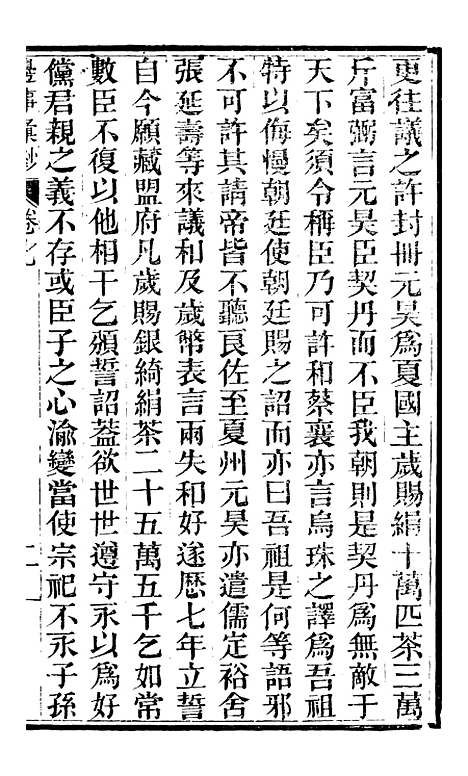 更往議之許封冊元昊爲夏國主歲賜絹十萬匹茶三萬
斤富弼言元昊臣契丹而不臣我朝則是契丹爲無敵于
天下矣須令稱臣乃可許和蔡襄亦言烏珠之譯爲吾祖
特以侮慢朝廷使朝廷賜之詔而亦曰吾祖是何等語邪
不可許其請帝皆不聽良佐至夏州元昊亦遣儒定裕舍
張延壽等來議和及歲幣表言兩失和好遂歷七年立誓
自今願藏盟府凡歲賜銀綺絹茶二十五萬五千乞如常
數臣不復以他相干乞頒誓詔蓋欲世世遵守永以爲好
儻君親之義不存或臣子之心渝變當使宗祀不永子孫
邊事彙鈔 卷七 二